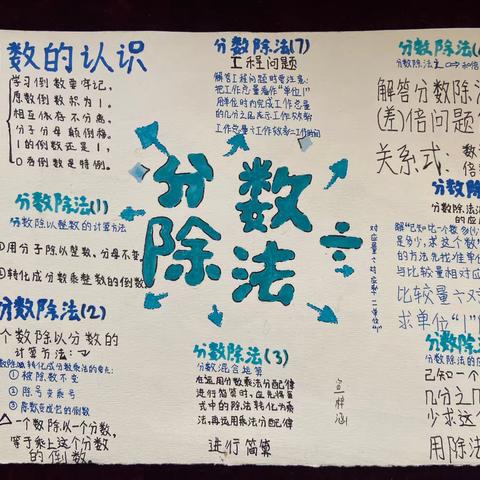 数的认识
学习倒数要牢记,
原数倒数积为1,
相互依存不分离。
分子分母颠倒梅,
1的倒数还是1,
0看倒数是特例。
分数除法(1)
分数除以整数的计算方法
①用分子除以整数,分母不变
②转化成分数乘整数的倒数
分数除法(2)
个数除以分数的
计算方法:
转化成分数乘法的
①被除数不变
②除号变乘号
③除数变成它的倒数
一个数除以一个分数,
等于乘上这个分数
的倒数。
分数除法(7)
工程问题
解答工程问题时要注意:
把工作总量看作"单位1"
用单位时内完成工作总量
的几分之几表示工作效率
工作总量÷工作效率=工作时间
分数
÷
除法
对应量÷对应率=单位"1"
分数除法(3)
分数混合运算
在运用分数乘法分配律
进行简算时,应先将算
式中的除法转化为乘
法,再运用乘法分配律
进行简算
宣梓涵
分数除法(
解答分数除法
(差)倍问题
关系式:
分数除法
的应
是多少,求这个数"
的方法先找准单位
与比较量相对应
比较量÷对
求单位"1"
分数除法
分数除法的应
已知一个
几分之几
少求这个
用除法